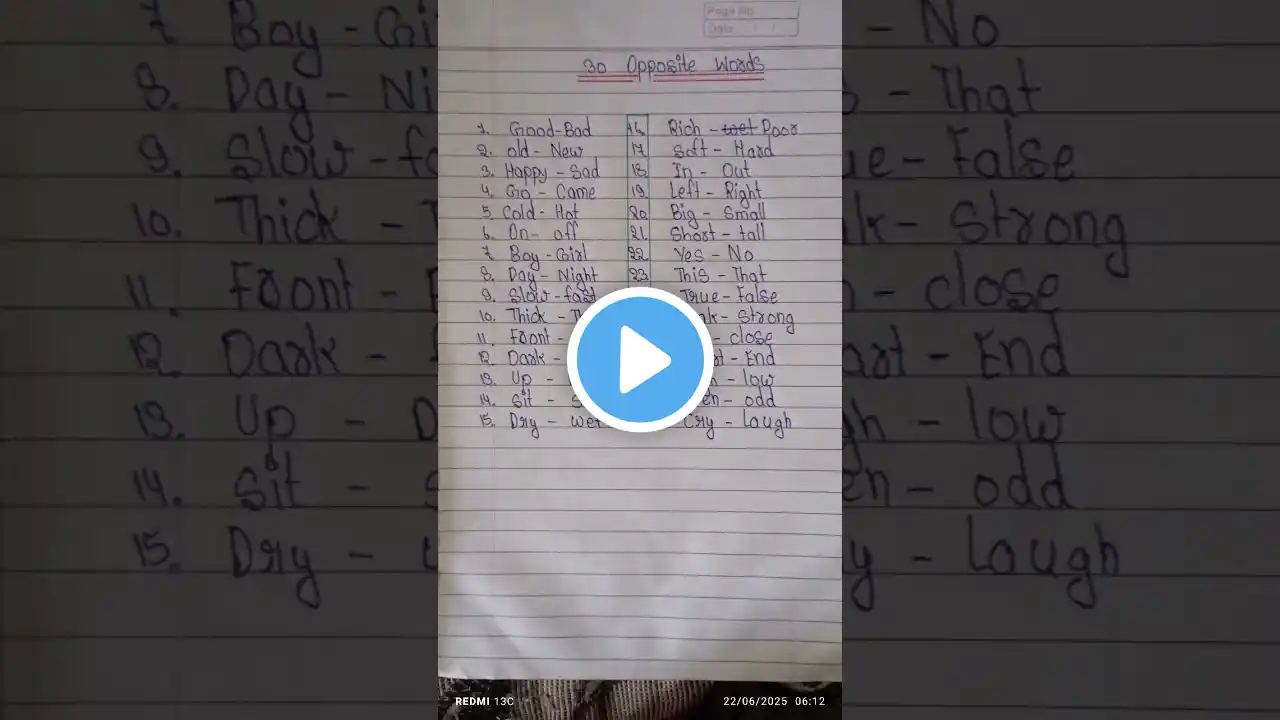 Page No.
Date / /
30 Opposite Words
1. Good-Bad
2. old- New
3. Happy - Sad
4. Go - Come
5. Cold- Hot
6. On- off
7. Boy-Girl
8. Day- Night
9. Slow-fast
10. Thick -
11. Front -
12. Dark -
13. Up -
14. Sit -
15. Dry - wet
16. Rich - wet Poor
17. Soft - Hard
18. In - Out
19. Left - Right
20. Big - Small
21. Short - tall
22. Yes - No
23. This - That
True - False
- Strong
- close
- End
- low
- odd
Cry - laugh
REDMI 13C
22/06/2025 06:12